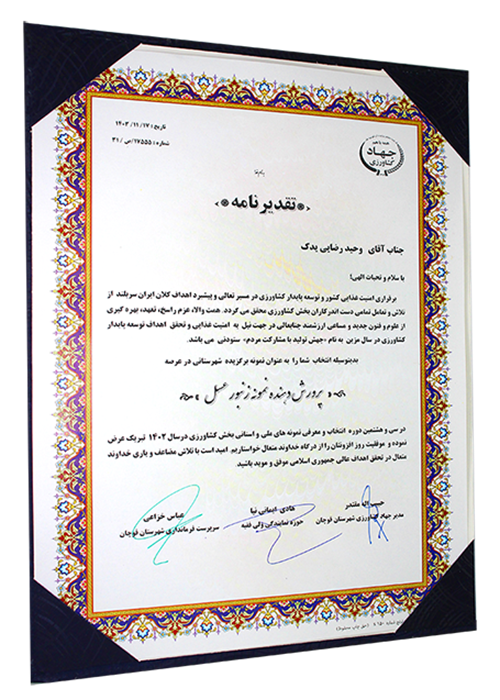 جهاد
کشاورزی
تاریخ: ۱۴۰۳/۱۱/۱۷
شماره: ۱۷۵۵۵/ص/۳۱
تقدیرنامه
جناب آقای وحید رضایی یدک
با سلام و تحیات الهی؛
برقراری امنیت غذایی کشور و توسعه پایدار کشاورزی در مسیر تعالی و پیشبرد اهداف کلان ایران سربلند از
تلاش و تعامل تمامی دست اندرکاران بخش کشاورزی محقق می گردد. همت والا، عزم راسخ، تعهد، بهره گیری
از علوم و فنون جدید و مساعی ارزشمند جنابعالی در جهت نیل به امنیت غذایی و تحقق اهداف توسعه پایدار
کشاورزی در سال مزین به نام «جهش تولید با مشارکت مردم» ستودنی می باشد.
بدینوسیله انتخاب شما را به عنوان نمونه برگزیده شهرستانی در عرصه
پرورش دهنده نمونه زنبور عسل
در سی و هشتمین دوره انتخاب و معرفی نمونه های ملی و استانی بخش کشاورزی درسال ۱۴۰۲ تبریک عرض
نموده و موفقیت روز افزونتان را از درگاه خداوند متعال خواستاریم. امید است با تلاش مضاعف و یاری خداوند
متعال در تحقق اهداف عالی جمهوری اسلامی موفق و موید باشید.
حسین اله مقتدر
مدیر جهاد کشاورزی شهرستان قوچان
هادی ایمانی نیا
حوزه نمایندگی ولی فقیه
عباس خزاعی
سرپرست فرمانداری شهرستان قوچان